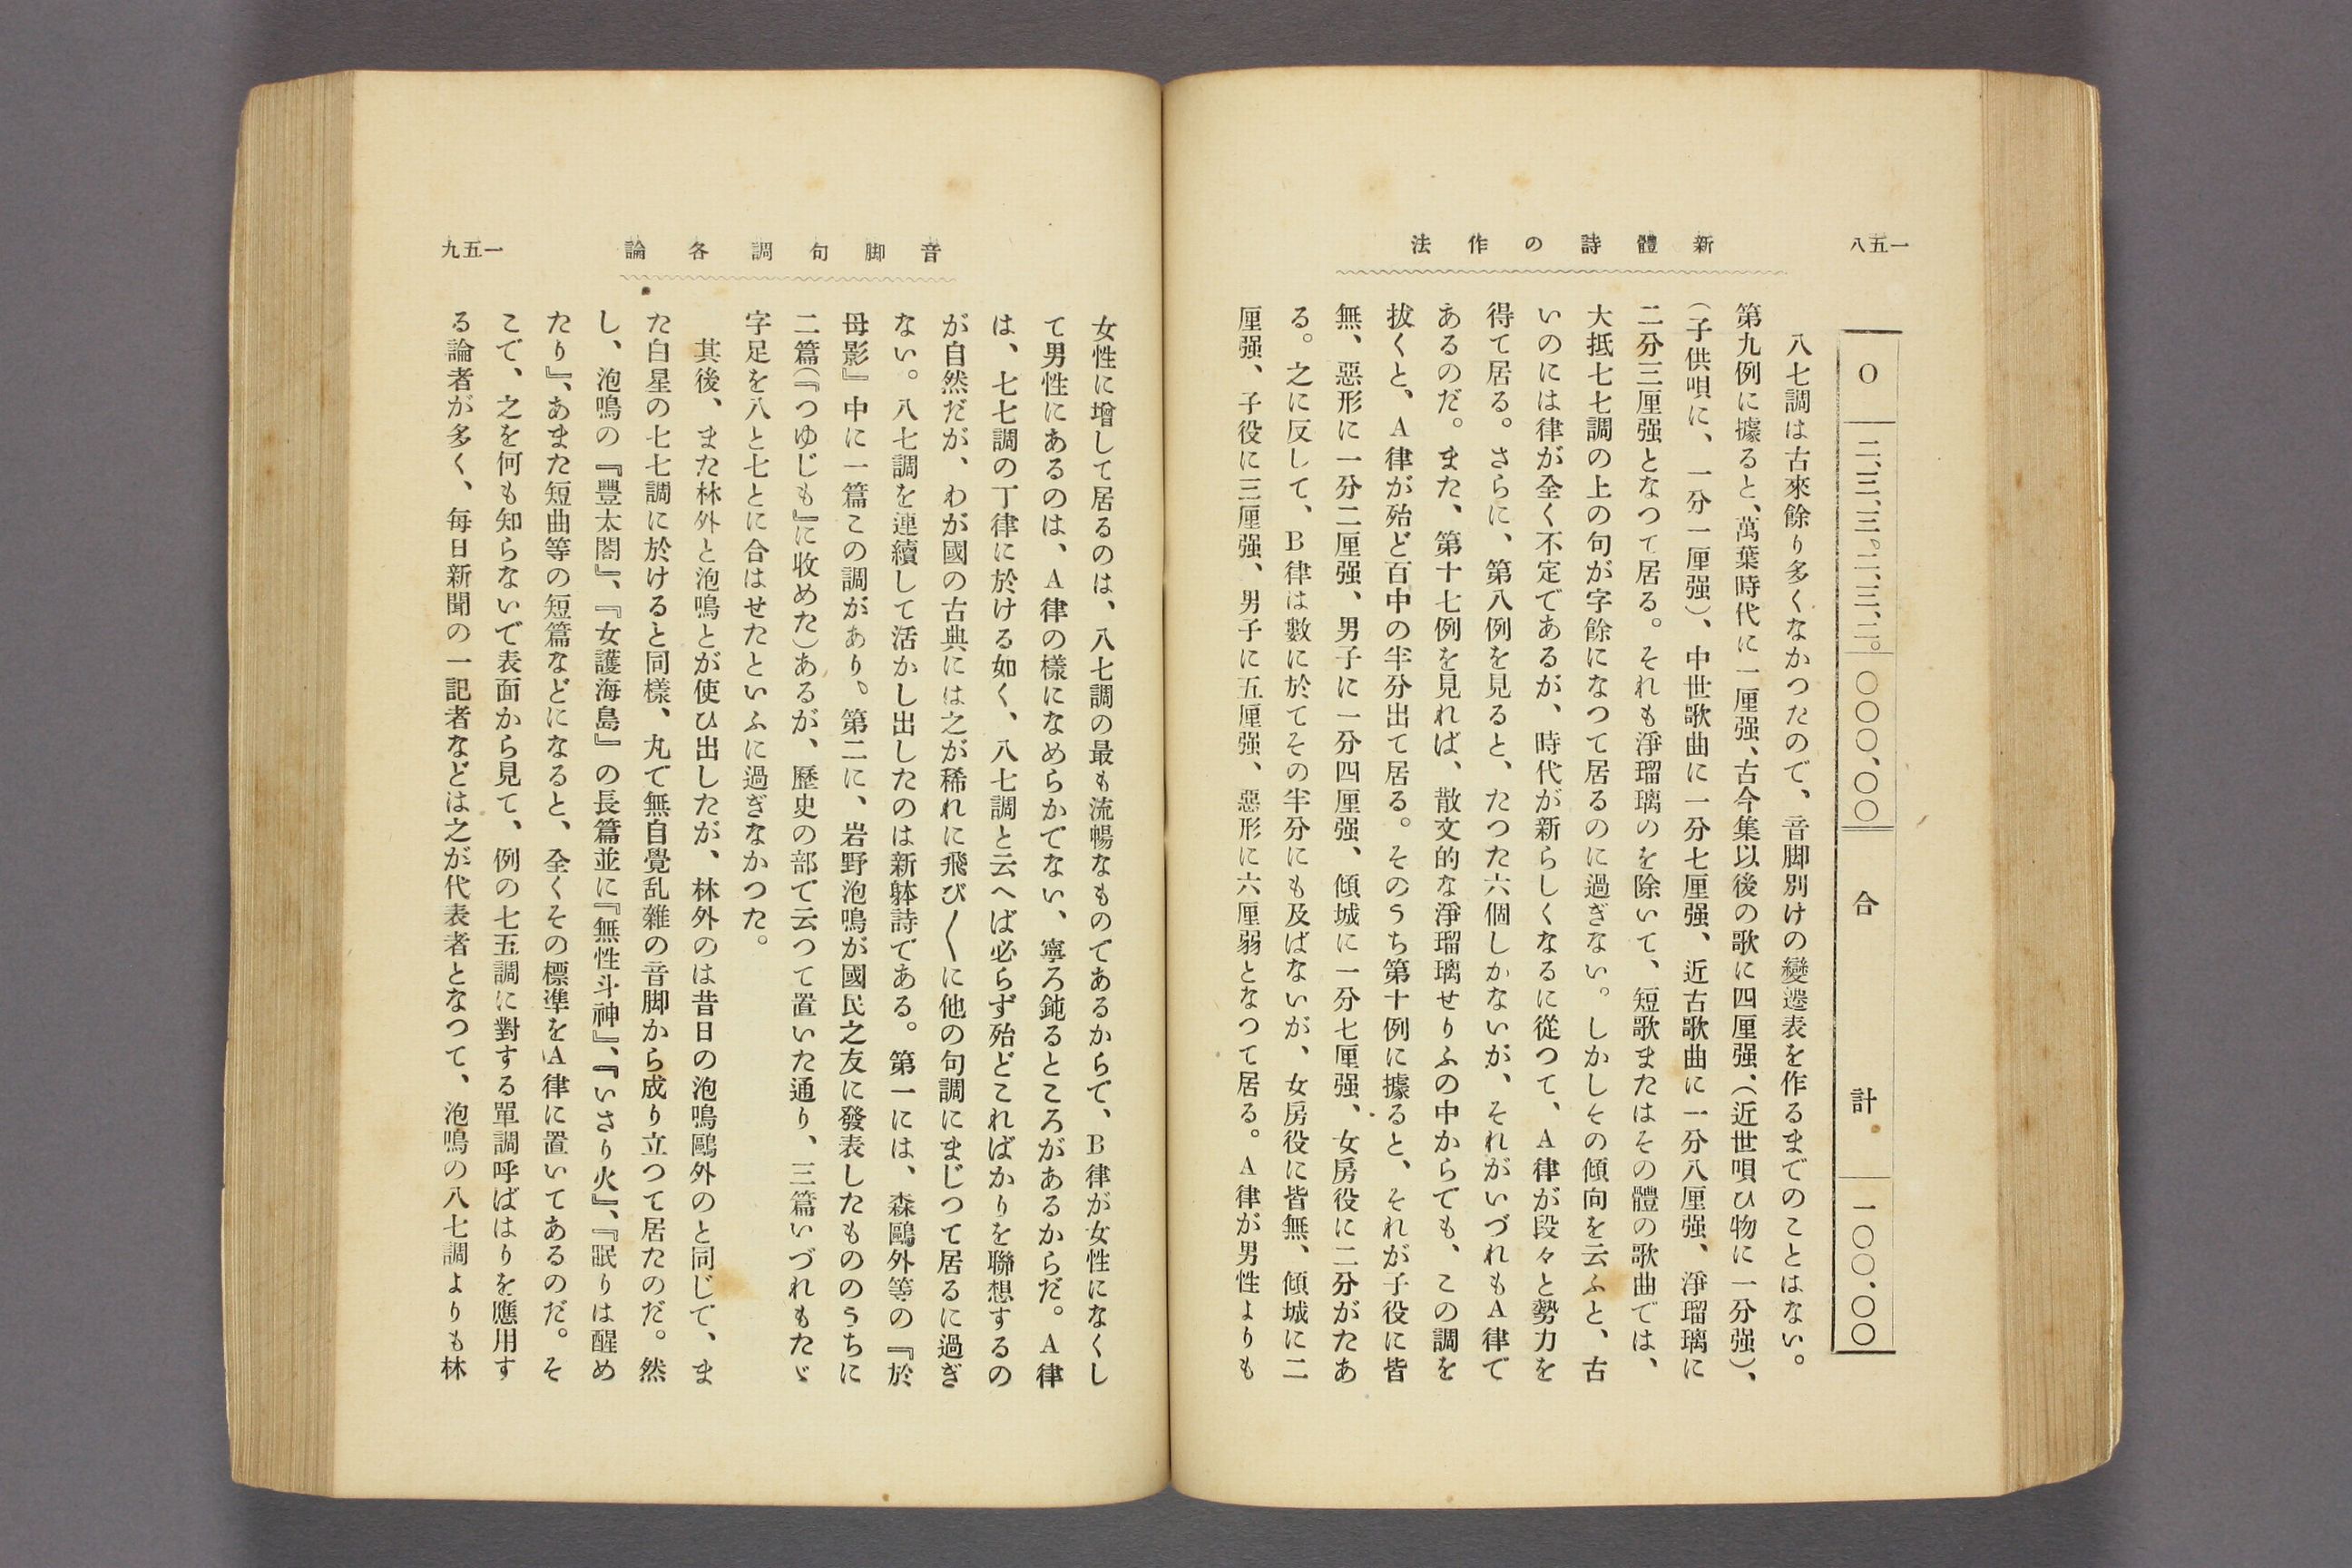 一五八
新體詩の作法
O 二、三、三。二、三、二。 〇〇〇、〇〇 合計 一〇〇、〇〇
八七調は古來餘り多くなかつたので、音脚別けの變遷表を作るまでのことはない。
第九例に據ると、萬葉時代に一厘强、古今集以後の歌に四厘强、(近世唄ひ物に一分强)、
(子供唄に、一分一厘强)、中世歌曲に一分七厘强、近古歌曲に一分八厘强、淨瑠璃に
二分三厘强となつて居る。それも淨瑠璃のを除いて、短歌またはその體の歌曲では、
大抵七七調の上の句が字餘になつて居るのに過ぎない。しかしその傾向を云ふと、古
いのには律が全く不定であるが、時代が新らしくなるに從つて、A律が段々と勢力を
得て居る。さらに、第八例を見ると、たつた六個しかないが、それがいづれもA律で
あるのだ。また、第十七例を見れば、散文的な淨瑠璃せりふの中からでも、この調を
拔くと、A律が殆ど百中の半分出て居る。そのうち第十例に據ると、それが子役に皆
無、惡形に一分二厘强、男子に一分四厘强、傾城に一分七厘强、女房役に二分がたあ
る。之に反して、B律は數に於てその半分にも及ばないが、女房役に皆無、傾城に二
厘强、子役に三厘强、男子に五厘强、惡形に六厘弱となつて居る。A律が男性よりも
音脚句調各論
一五九
女性に增して居るのは、八七調の最も流暢なものであるからで、B律が女性になくし
て男性にあるのは、A律の樣になめらかでない、寧ろ鈍るところがあるからだ。A律
は、七七調の丁律に於ける如く、八七調と云へば必らず殆どこればかりを聯想するの
が自然だが、わが國の古典には之が稀れに飛び〱に他の句調にまじつて居るに過ぎ
ない。八七調を連續して活かし出したのは新躰詩である。第一には、森鷗外等の『於
母影』中に一篇この調があり。第二に、岩野泡鳴が國民之友に發表したもののうちに
二篇(『つゆじも』に收めた)あるが、歷史の部で云つて置いた通り、三篇いづれもたゞ
字足を八と七とに合はせたといふに過ぎなかつた。
其後、また林外と泡鳴とが使ひ出したが、林外のは昔日の泡鳴鷗外のと同じで、ま
た白星の七七調に於けると同樣、丸で無自覺乱雜の音脚から成り立つて居たのだ。然
し、泡鳴の『豐太閤』、『女護海島』の長篇並に『無性斗神』、『いさり火』、『眠りは醒め
たり』、あまた短曲等の短篇などになると、全くその標準をA律に置いてあるのだ。そ
こで、之を何も知らないで表面から見て、例の七五調に對する單調呼ばはりを應用す
る論者が多く、每日新聞の一記者などは之が代表者となつて、泡鳴の八七調よりも林